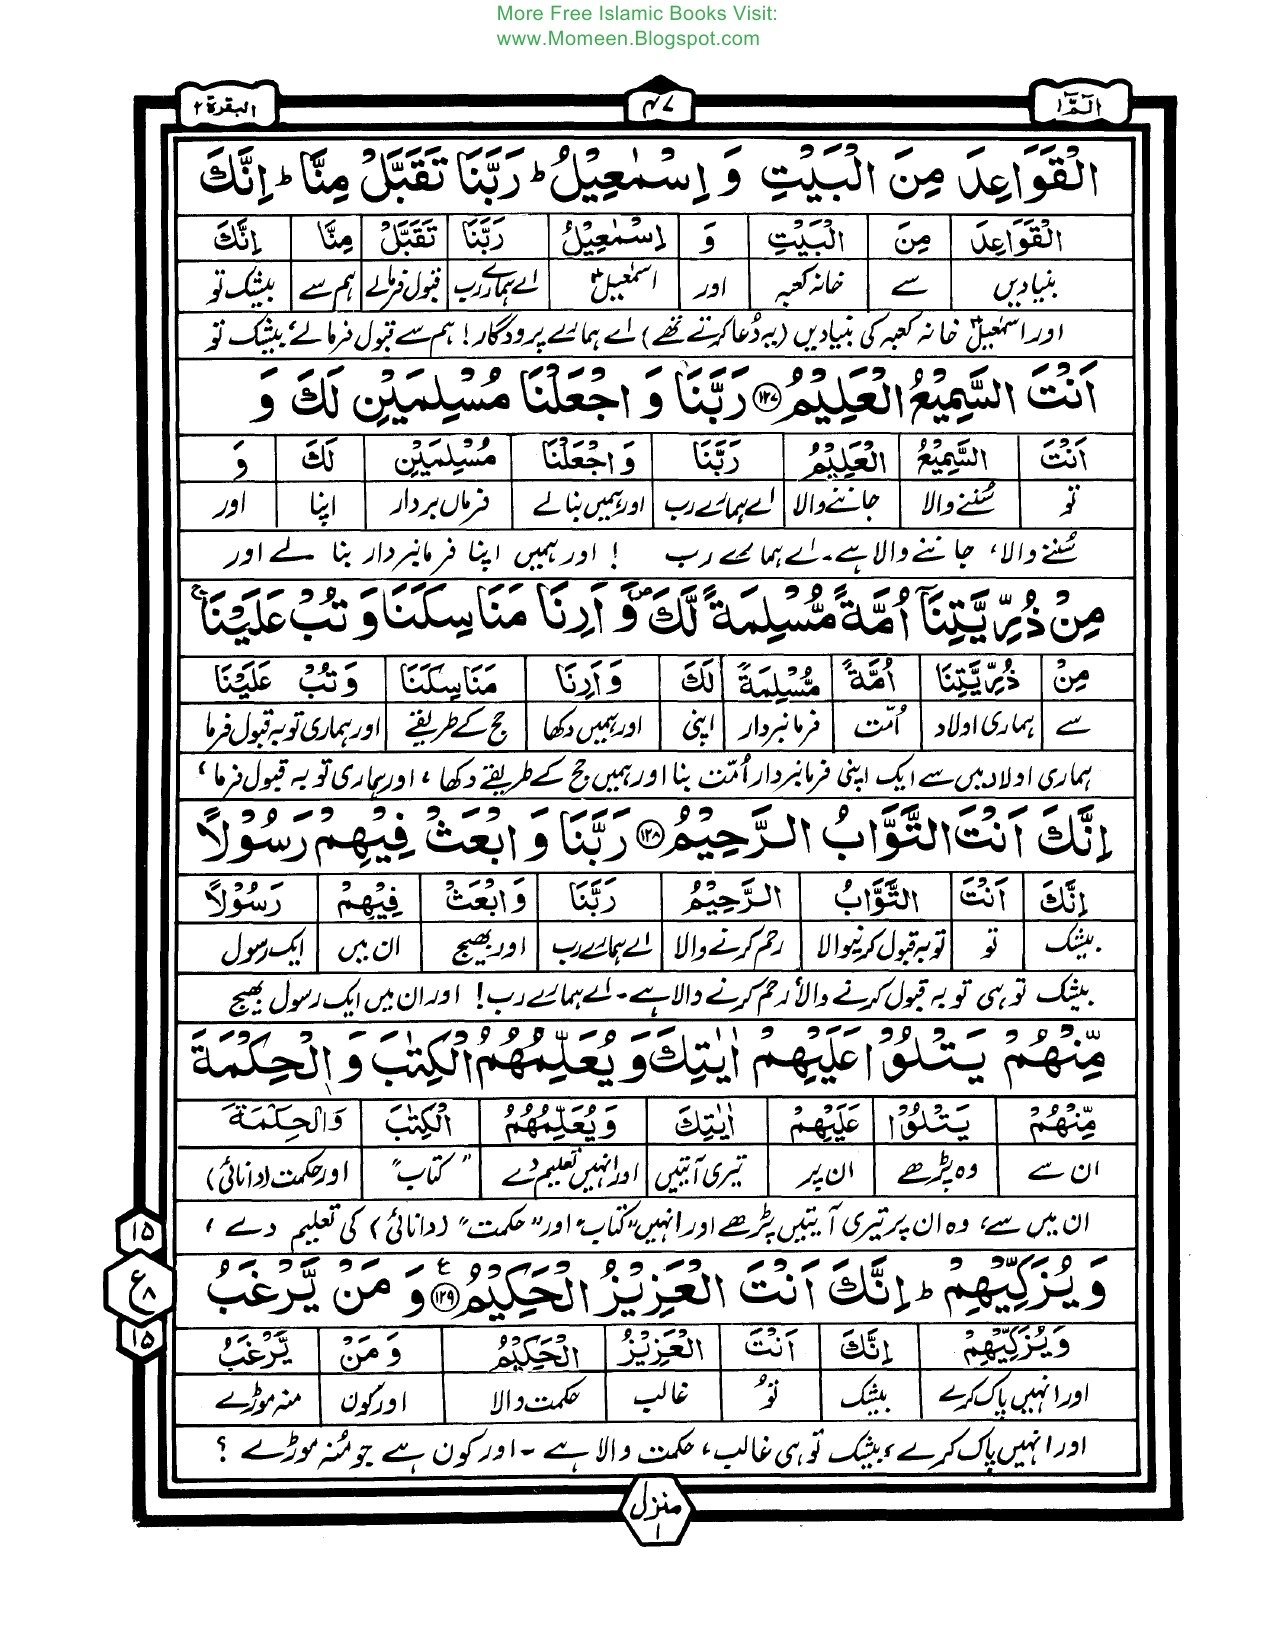 More Free Islamic Books Visit:
www.Momeen.Blogspot.com
الٓمّٓ ١ ٤٧ البقرة ٢
الْقَوَاعِدَ مِنَ الْبَيْتِ وَ اِسْمٰعِيْلُ ؕ رَبَّنَا تَقَبَّلْ مِنَّا ؕ اِنَّكَ
الْقَوَاعِدَ مِنَ الْبَيْتِ وَ اِسْمٰعِيْلُ رَبَّنَا تَقَبَّلْ مِنَّا اِنَّكَ
بنیادیں سے خانہ کعبہ اور اسمٰعیلؑ اے ہمارے رب قبول فرمالے ہم سے بیشک تو
اور اسمٰعیلؑ خانہ کعبہ کی بنیادیں (یہ دُعا کرتے تھے) اے ہمارے پرودگار! ہم سے قبول فرمالے، بیشک تو
اَنْتَ السَّمِيْعُ الْعَلِيْمُ ۝١٢٧ رَبَّنَا وَ اجْعَلْنَا مُسْلِمَيْنِ لَكَ وَ
اَنْتَ السَّمِيْعُ الْعَلِيْمُ رَبَّنَا وَ اجْعَلْنَا مُسْلِمَيْنِ لَكَ وَ
تو سُننے والا جاننے والا اے ہمارے رب اور ہمیں بنالے فرماں بردار اپنا اور
سُننے والا، جاننے والا ہے۔ اے ہمارے رب ! اور ہمیں اپنا فرمانبردار بنا لے اور
مِنْ ذُرِّيَّتِنَاۤ اُمَّةً مُّسْلِمَةً لَّكَ ۪ وَ اَرِنَا مَنَاسِكَنَا وَ تُبْ عَلَيْنَا ۚ
مِنْ ذُرِّيَّتِنَا اُمَّةً مُّسْلِمَةً لَكَ وَ اَرِنَا مَنَاسِكَنَا وَ تُبْ عَلَيْنَا
سے ہماری اولاد اُمّت فرمانبردار اپنی اور ہمیں دکھا حج کے طریقے اور ہماری توبہ قبول فرما
ہماری اولاد میں سے ایک اپنی فرمانبردار اُمّت بنا اور ہمیں حج کے طریقے دکھا، اور ہماری توبہ قبول فرما،
اِنَّكَ اَنْتَ التَّوَّابُ الرَّحِيْمُ ۝١٢٨ رَبَّنَا وَ ابْعَثْ فِيْهِمْ رَسُوْلًا
اِنَّكَ اَنْتَ التَّوَّابُ الرَّحِيْمُ رَبَّنَا وَ ابْعَثْ فِيْهِمْ رَسُوْلًا
بیشک تو توبہ قبول کرنیوالا رحم کرنے والا اے ہمارے رب اور بھیج ان میں ایک رسول
بیشک تو ہی توبہ قبول کرنے والا، رحم کرنے والا ہے۔ اے ہمارے رب! اور ان میں ایک رسول بھیج
مِّنْهُمْ يَتْلُوْا عَلَيْهِمْ اٰيٰتِكَ وَ يُعَلِّمُهُمُ الْكِتٰبَ وَ الْحِكْمَةَ
مِّنْهُمْ يَتْلُوْا عَلَيْهِمْ اٰيٰتِكَ وَ يُعَلِّمُهُمُ الْكِتٰبَ وَالْحِكْمَةَ
ان سے وہ پڑھے ان پر تیری آیتیں اور انہیں تعلیم دے "کتاب" اور حکمت (دانائی)
ان میں سے، وہ ان پر تیری آیتیں پڑھے اور انہیں "کتاب" اور "حکمت" (دانائی) کی تعلیم دے،
وَ يُزَكِّيْهِمْ ؕ اِنَّكَ اَنْتَ الْعَزِيْزُ الْحَكِيْمُ ۝١٢٩ ع وَ مَنْ يَّرْغَبُ
وَ يُزَكِّيْهِمْ اِنَّكَ اَنْتَ الْعَزِيْزُ الْحَكِيْمُ وَ مَنْ يَّرْغَبُ
اور انہیں پاک کرے بیشک تُو غالب حکمت والا اور کون منہ موڑے
اور انہیں پاک کرے، بیشک تو ہی غالب، حکمت والا ہے ۔ اور کون ہے جو مُنہ موڑے ؟
١٥
ع ٨
١٥
منزل
١